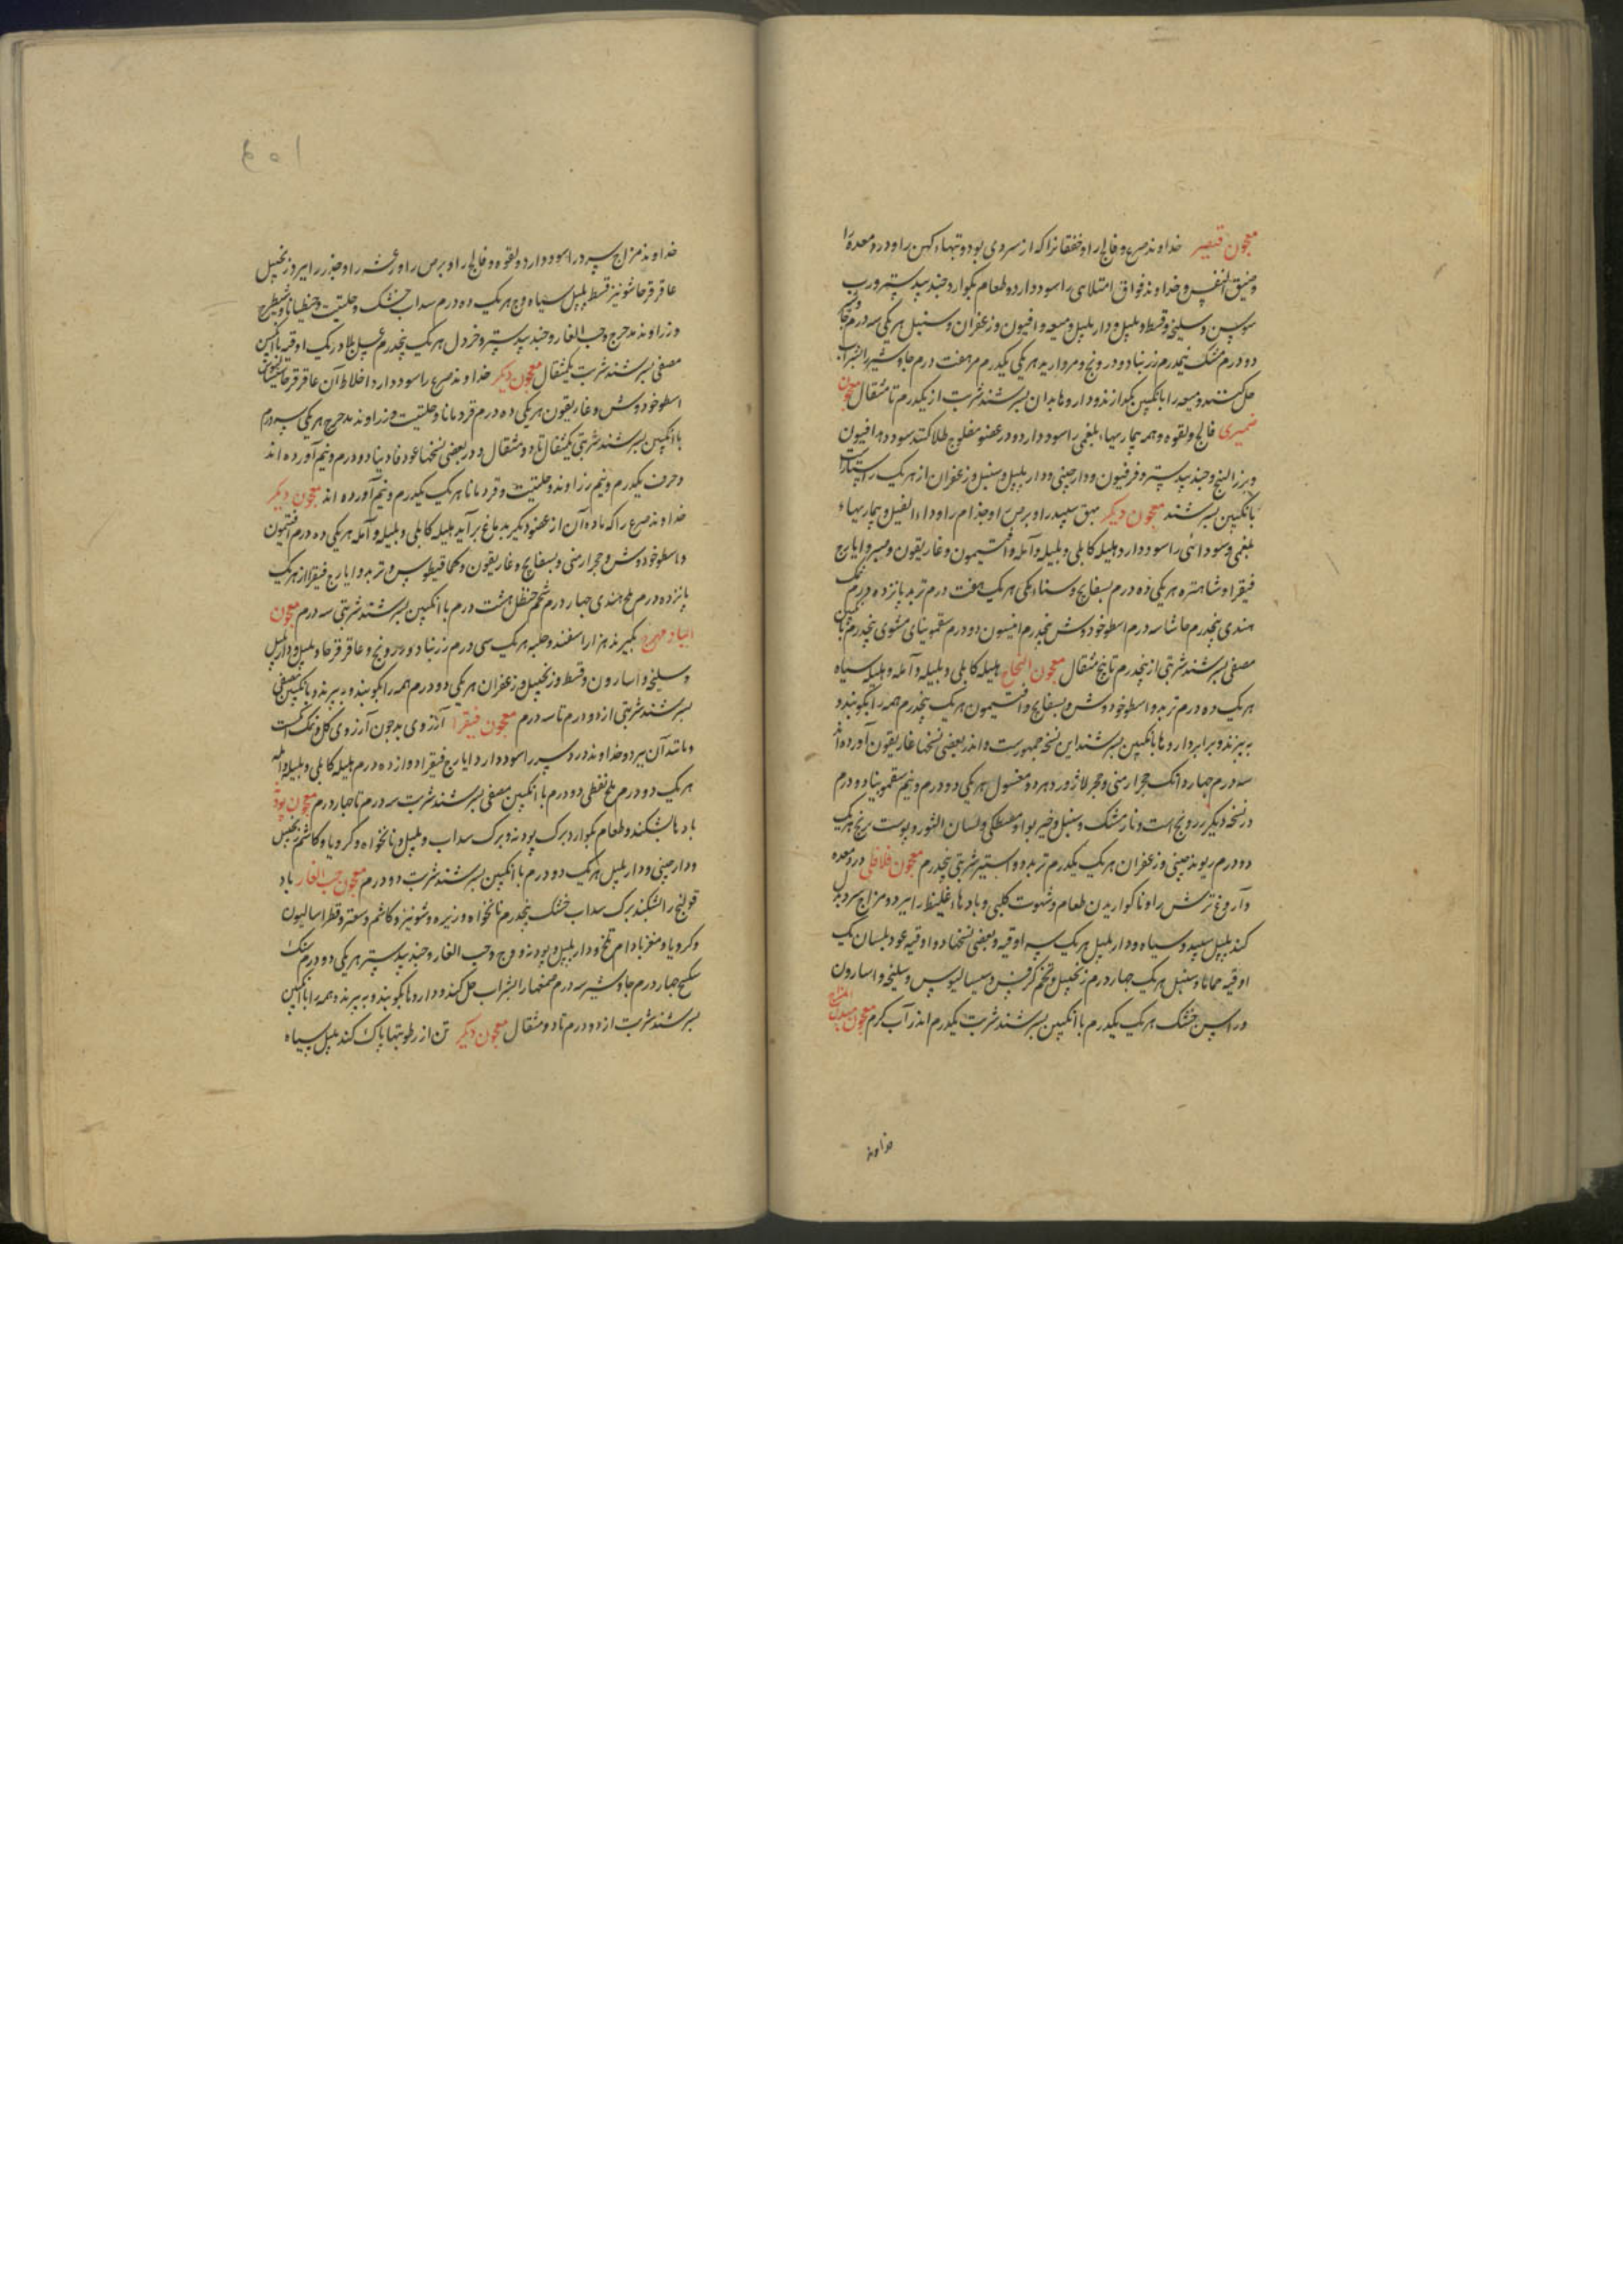 معجون قیصر خداوند صرع و فالج را و خفقانرا که از سردی بود و تبهاء کهن را و درد معده را
و ضیق النفس و خداوند فواق امتلای را سود دارد و طعام بکوارد جندبیدستر و رب
سوس و سلیخه و قسط و پلپل و دارپلپل و میعه و افیون و زعفران و سنبل هر یکی سه درم
دو درم مشک نیمدرم زرنباد و درونج و مروارید هر یکی یکدرم مر هفت درم جاوشیر را بشراب
حل کنند و میعه را بانکبین بکدازند و داروها بدان بسرشند شربت از یکدرم تا مثقال معجون
ضمیری فالج و لقوه و همه بیماریهاء بلغمی را سود دارد و در عضو مفلوج طلا کنند سود دهد افیون
و بزرالبنج و جندبیدستر و فرفیون و دارچینی و دارپلپل و سنبل و زعفران از هر یک راستاراست
بانکبین بسرشند معجون دیکر بهق سپید را و برص را و جذام را و داء الفیل و بیماریهاء
بلغمی و سودائی را سود دارد هلیله کابلی و بلیله و آمله و افتیمون و غاریقون و صبر و ایارج
فیقرا و شاهتره هر یکی ده درم بسفایج و سناء مکی هر یک هفت درم تربد پانزده درم نمک
هندی پنجدرم حاشا سه درم اسطوخودوس پنجدرم انیسون دو درم سقمونیای مشوی پنجدرم بانکبین
مصفی بسرشند شربتی از پنجدرم تا پنج مثقال معجون النجاح هلیله کابلی و بلیله و آمله و هلیله سیاه
هر یک ده درم تربد و اسطوخودوس و بسفایج و افتیمون هر یک پنجدرم همه را بکوبند و
به بیزند و برابر داروها بانکبین بسرشند این نسخه جمهورست و اندر بعضی نسخها غاریقون آورده اند
سه درم چهار دانک حجر ارمنی و حجر لاژورد هر دو مغسول هر یکی دو درم و نیم سقمونیا دو درم
در نسخه دیکر زرونج است و نارمشک و سنبل و خیربوا و مصطکی و لسان الثور و پوست ترنج هر یک
دو درم ریوند چینی و زعفران هر یک یکدرم تربد دو استیر شربتی پنجدرم معجون فلافلی درد معده
و آروغ ترش را و ناکواریدن طعام و شهوت کلبی و بادهاء غلیظ را ببرد و مزاج سرد بدل
کند پلپل سپید و سیاه و دارپلپل هر یک سه اوقیه و بعضی نسخها دو اوقیه عود بلسان یک
اوقیه حماما و سنبل هر یک چهار درم زنجبیل و تخم کرفس و سیسالیوس و سلیخه و اسارون
و راسن خشک هر یک یکدرم با انکبین بسرشند شربت یکدرم اندر آب کرم معجون
خداوند
خداوند مزاج سرد را سود دارد و لقوه و فالج را و برص را و رعشه را و خدر را ببرد زنجبیل
عاقرقرحا شونیز قسط پلپل سیاه وج هر یک ده درم سداب خشک و حلتیت و جنطیانا و شیطرج
و زراوند مدحرج و حب الغار و جندبیدستر و خردل هر یک پنجدرم عسل بلادر یک اوقیه با انکبین
مصفی بسرشند شربت یکمثقال معجون دیکر خداوند صرع را سود دارد اخلاط آن عاقرقرحا
اسطوخودوس و غاریقون هر یکی ده درم قردمانا و حلتیت و زراوند مدحرج هر یکی سه درم
با انکبین بسرشند شربتی یکمثقال تا دو مثقال و در بعضی نسخها عود فاونیا دو درم و نیم آورده اند
و حرف یکدرم و نیم زراوند و حلتیت و قردمانا هر یک یکدرم و نیم آورده اند معجون دیکر
خداوند صرع را که ماده آن از عضو دیکر بدماغ برآید هلیله کابلی و بلیله و آمله هر یکی ده درم افتیمون
و اسطوخودوس و حجر ارمنی و بسفایج و غاریقون و کمافیطوس و تربد و ایارج فیقرا از هر یک
پانزده درم ملح هندی چهار درم شحم حنظل هشت درم با انکبین بسرشند شربتی سه درم معجون
بکیرند هزاراسفند و حلبه هر یک سی درم زرنباد و درونج و عاقرقرحا و پلپل و دارپلپل
و سلیخه و اسارون و قسط و زنجبیل و زعفران هر یکی دو درم همه را بکوبند و به بیزند و بانکبین مصفی
بسرشند شربتی از دو درم تا سه درم معجون فیقرا آرزوی بد چون آرزوی کل و نمک انکشت
و مانند آن ببرد و خداوند درد سر را سود دارد ایارج فیقرا دوازده درم هلیله کابلی و بلیله و آمله
هر یک دو درم ملح نفطی دو درم با انکبین مصفی بسرشند شربت سه درم تا چهار درم معجون پودنه
بادها بشکند و طعام بکوارد برک پودنه و برک سداب و پلپل و نانخواه و کرویا و کاشم و زنجبیل
و دارچینی و دارپلپل هر یک دو درم با انکبین بسرشند شربت دو درم معجون حب الغار باد
قولنج را بشکند برک سداب خشک پنجدرم نانخواه و زیره و شونیز و کاشم و سعتر و فطراسالیون
و کرویا و مغز بادام تلخ و دارپلپل و پودنه و وج و حب الغار و جندبیدستر هر یکی دو درم
سکبینج چهار درم جاوشیر سه درم صمغها را بشراب حل کنند و داروها بکوبند و به بیزند و همه را با انکبین
بسرشند شربت از دو درم تا دو مثقال معجون دیکر تن از رطوبتها پاک کند پلپل سیاه